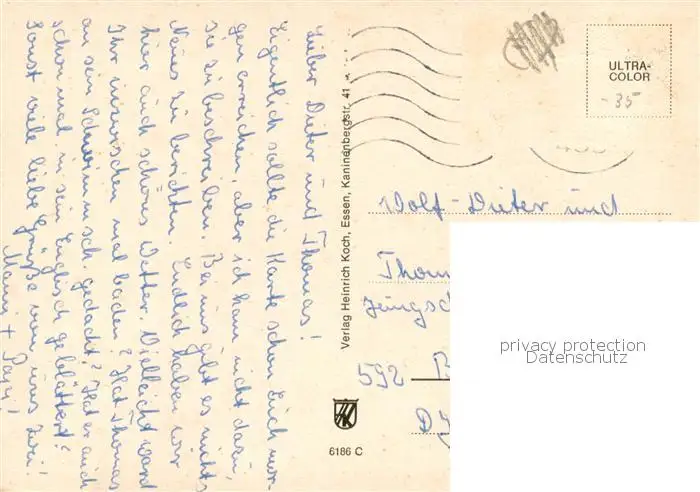 Lieber Dieter und Thomas!
Eigentlich sollte die Karte schon Euch mor-
gen erreichen, aber ich kam nicht dazu,
sie zu beschreiben. Bei uns gibt es nichts
Neues zu berichten. Endlich haben wir
hier auch schönes Wetter. Vielleicht ward
Ihr inzwischen mal baden? Hat Thomas
an sein Schwimmsch. gedacht? Hat er auch
schon mal in sein Englisch geblättert?
Sonst viele liebe Grüße von uns zwei!
Mami + Papi!
Verlag Heinrich Koch, Essen, Kaninenbergstr. 41
HK
6186 C
ULTRA-
COLOR
-35
Wolf-Dieter und
Thom
Jungsc
592 B
privacy protection
Datenschutz